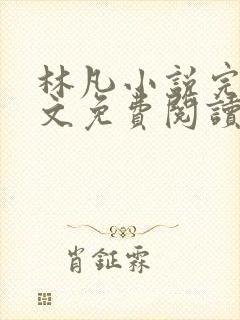 林凡小説完
文免費閱讀
肖鉦霖